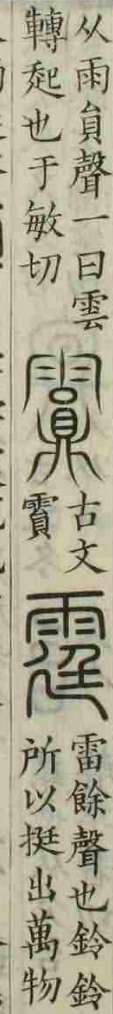 从雨貟聲一曰雲
轉起也于敏切
古文
霣
霆
雷餘聲也鈴鈴
所以挺出萬物